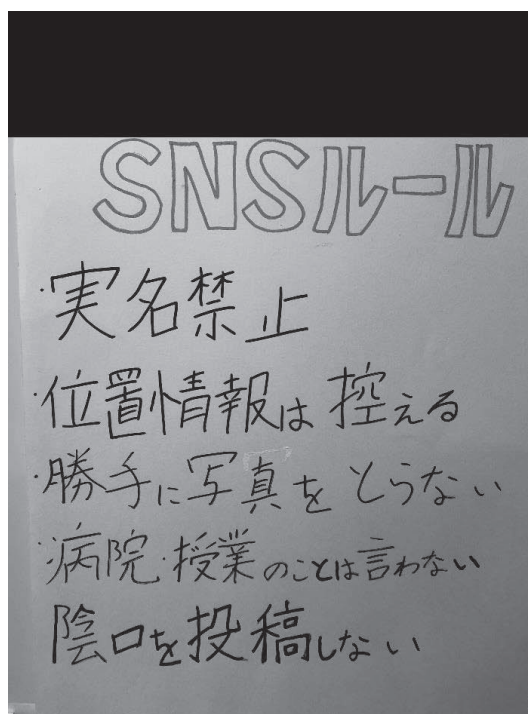 SNSルール
・実名禁止
・位置情報は控える
・勝手に写真をとらない
・病院・授業のことは言わない
陰口を投稿しない